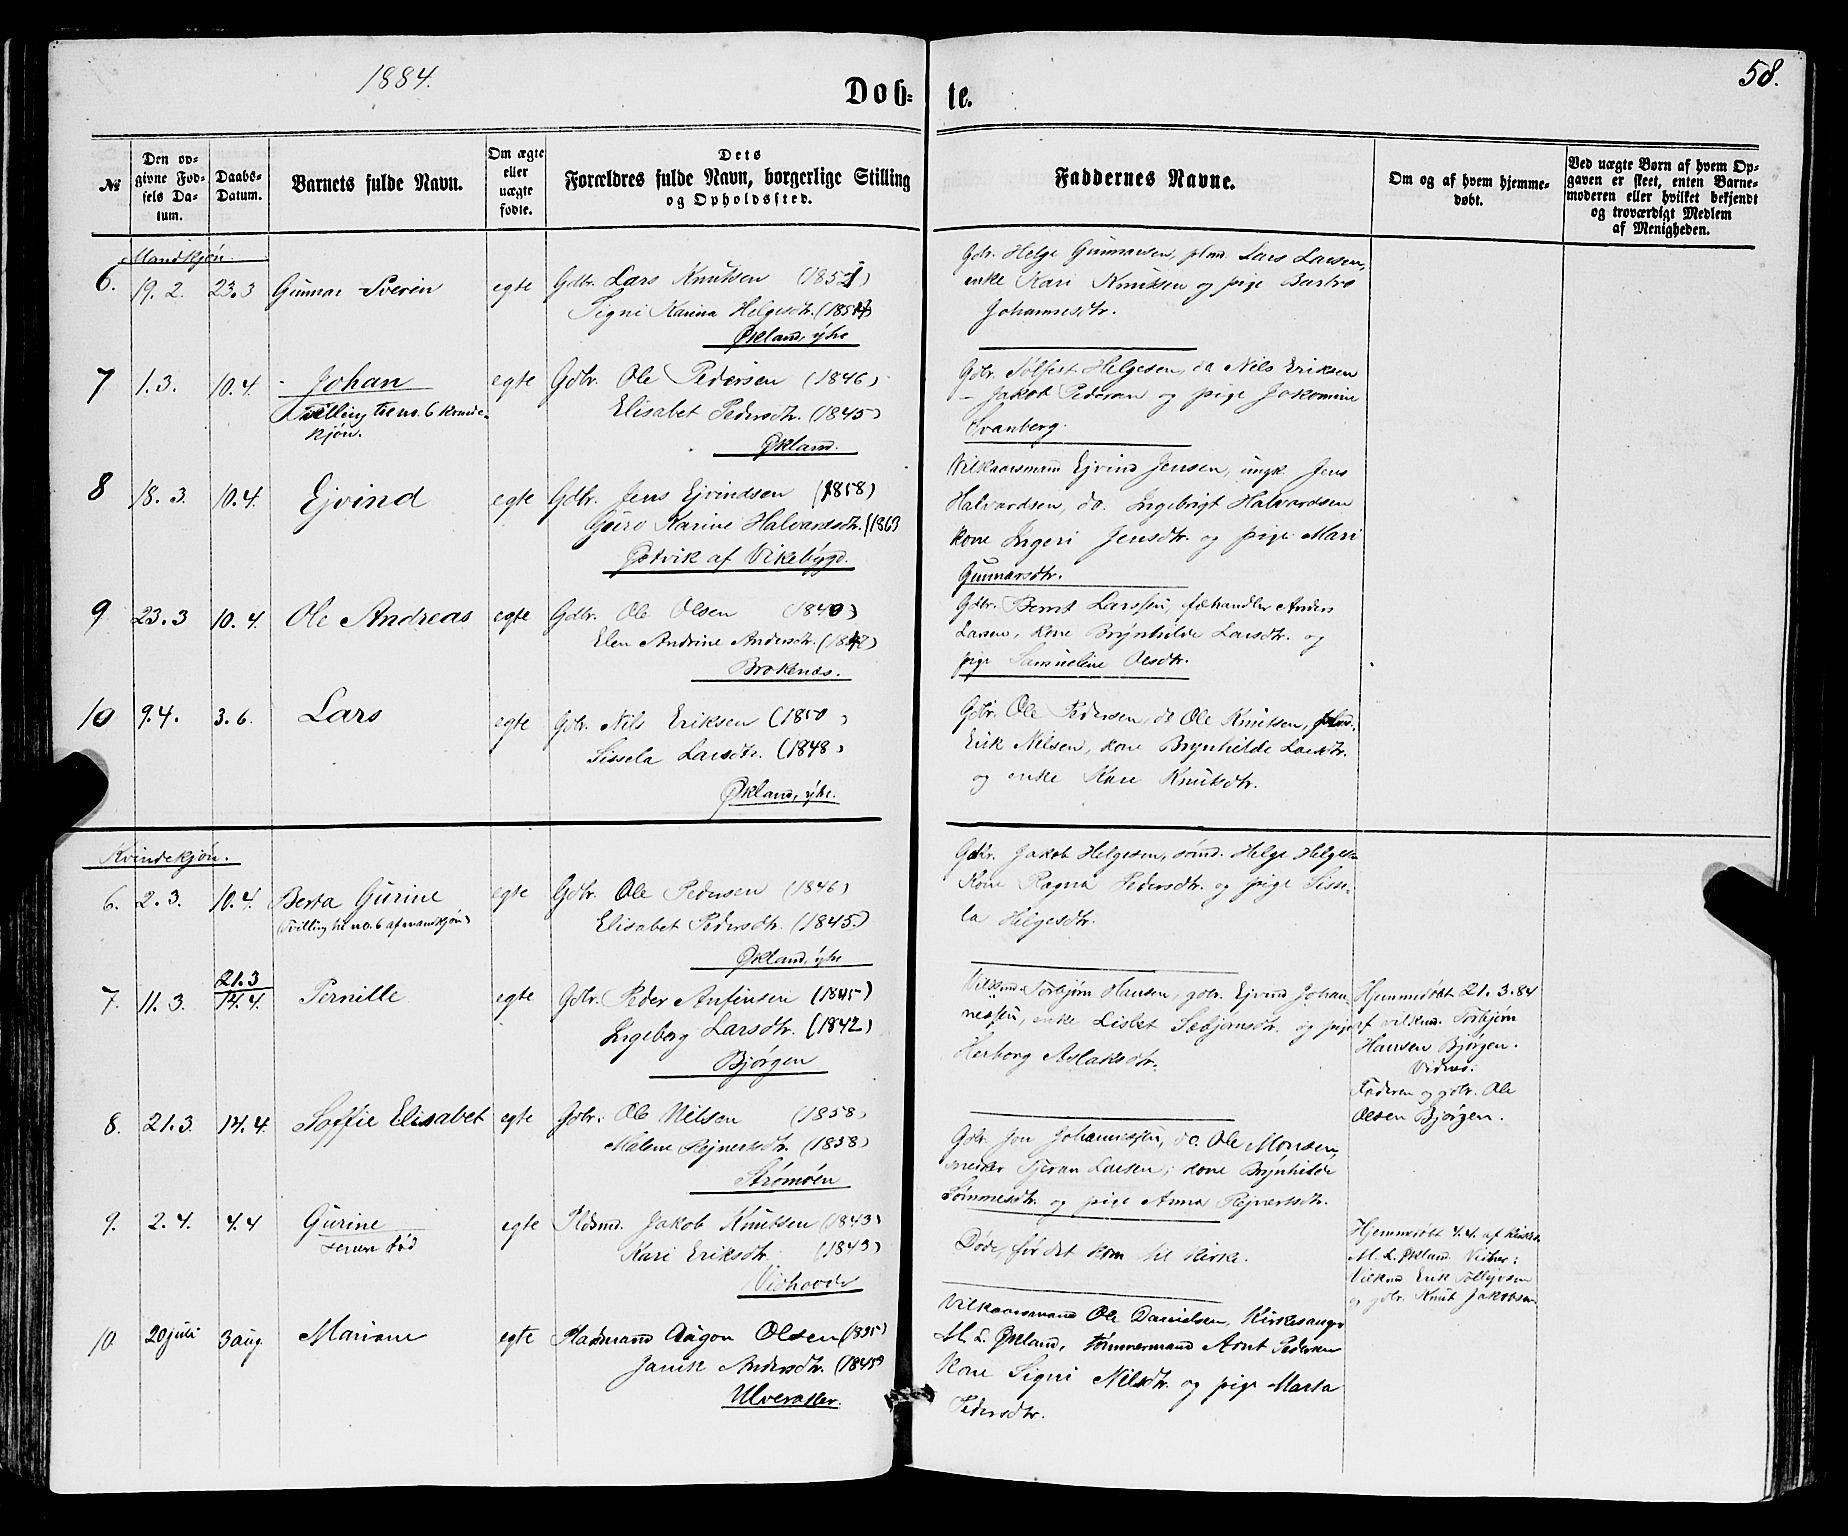 1884.
58.
Døb=
te.
№
Den op=
givne Fød=
sels Da=
tum.
Daabs=
Datum.
Barnets fulde Navn.
Om ægte
eller
uægte
fødte.
Dets
Forældres fulde Navn, borgerlige Stilling
og Opholdssted.
Faddernes Navne.
Om og af hvem hjemme=
døbt.
Ved uægte Børn af hvem Op=
gaven er skeet, enten Barne=
moderen eller hvilket bekjendt
og troværdigt Medlem
af Menigheden.
Mandkjøn
6. 19. 2. 23.3 Gunnar Severin egte Gdbr. Lars Knutsen (1851)
Signi Karina Helgesdtr. (1854)
Økland, ytre
Gdbr. Helge Gunnarsen, plmd. Lars Larsen,
enke Kari Knutsen og pige Bertro
Johannesdtr.
7 1.3. 10.4. Johan egte Gdbr. Ole Pedersen (1846)
Tvilling til no. 6 kvinde-
kjøn.
Elisabet Pedersdtr. (1845)
Økland.
Gdbr. Tolfest Helgesen, do Nils Eriksen
– Jakob Pedersen og pige Jakomine
Svanberg.
8 18. 3. 10.4. Ejvind egte Gdbr. Jens Ejvindsen (1858)
Guro Karine Halvardsdtr. (1863
Østvik af Vikebygd.
Vilkaarsmand Ejvind Jensen, ungk. Jens
Halvardsen, do. Ingebrigt Halvardsen
kone Ingeri Jensdtr. og pige Mari
Gunnarsdtr.
9 23.3 10.4. Ole Andreas egte Gdbr. Ole Olsen (1840)
Elen Andrine Andersdtr. (1842)
Brokenæs.
Gdbr. Bernt Larssen, fæhandler Anders
Larsen, kone Brynhilde Larsdtr. og
pige Samueline Olesdtr.
10 9.4. 3.6. Lars egte Gdbr. Nils Eriksen (1850)
Sissela Larsdtr. (1848)
Økland, ytre.
Gdbr. Ole Pedersen, do Ole Knutsen, plmd.
Erik Nilsen, kone Brynhilde Larsdtr.
og enke Kari Knutsdtr.
Kvindekjøn.
6. 2.3. 10.4. Berta Gurine egte Gdbr. Ole Pedersen (1846)
(Tvilling til no. 6 af mandkjøn)
Elisabet Pedersdtr. (1845)
Økland, ytre
Gdbr. Jakob Helgesen, sømd. Helge Helgesen
Kone Ragna Pedersdtr. og pige Sisse-
la Helgesdtr.
7. 11.3. 21.3
14.4. Pernille egte Gdbr. Peder Anfinsen (1845)
Ingeborg Larsdtr. (1842)
Bjørgen
Vilkmd. Torbjørn Hansen, gdbr. Ejvind Johan-
nessen, enke Lisbet Sebjørnsdtr. og pige
Herborg Aslaksdtr.
Hjemmedøbt 21.3.84
af vilkmd. Torbjørn
Hansen Bjørgen.
Vidner:
Faderen og gdbr. Ole
Olsen Bjørgen.
8. 21.3. 14.4. Soffie Elisabet egte Gdbr. Ole Nilsen (1858)
Malene Rejnertsdtr. (1858)
Strømøen
Gdbr. Jon Johannessen, do. Ole Monsen,
snedker Tjeran Larsen, kone Brynhilde
Sømmesdtr. og pige Anna Rejnertsdtr.
9. 2.4. 4.4 Gurine egte Pldsmd. Jakob Knutsen (1843)
Kari Eriksdtr. (1843)
Døde, før det kom til kirke.
Hjemmedøbt 4.4. af kirkes.
M. L. Økland. Vidner:
Vilkmd Erik Tollejvsen
og gdbr. Knut Jakobsen
10. 20 juli 3 aug. Mariane egte Pladsmand Aagon Olsen (1835)
Janik Andersdtr. (1845)
Ulveraker.
Vilkaarsmand Ole Danielsen, Kirkesanger
M. L. Økland, tømmermand Arnt Pedersen
Kone Signi Nilsdtr. og pige Marta
Pedersdtr.